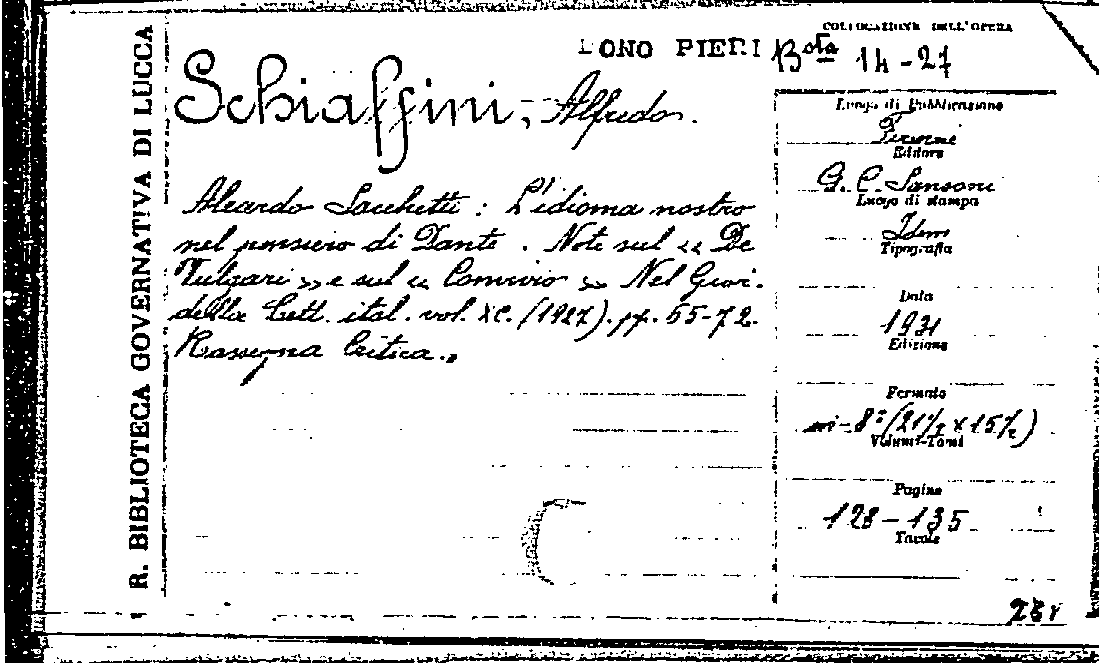 R. BIBLIOTECA GOVERNATIVA DI LUCCA
DONO PIERI
COLLOCAZIONE DELL'OPERA
Bsta 14-27
Schiaffini, Alfredo.
Aleardo Sacchetti : L'idioma nostro
nel pensiero di Dante. Note sul « De
Vulgari » e sul « Convivio » Nel Gior.
della Lett. ital. vol. XC. (1927). pp. 55-72.
Rassegna Critica.
Luogo di Pubblicazione
Firenze
Editore
G. C. Sansoni
Luogo di stampa
Idem
Tipografia
Data
1931
Edizione
Formato
in-8° (21½ x 15½)
Volumi-Tomi
Pagine
128-135
Tavole